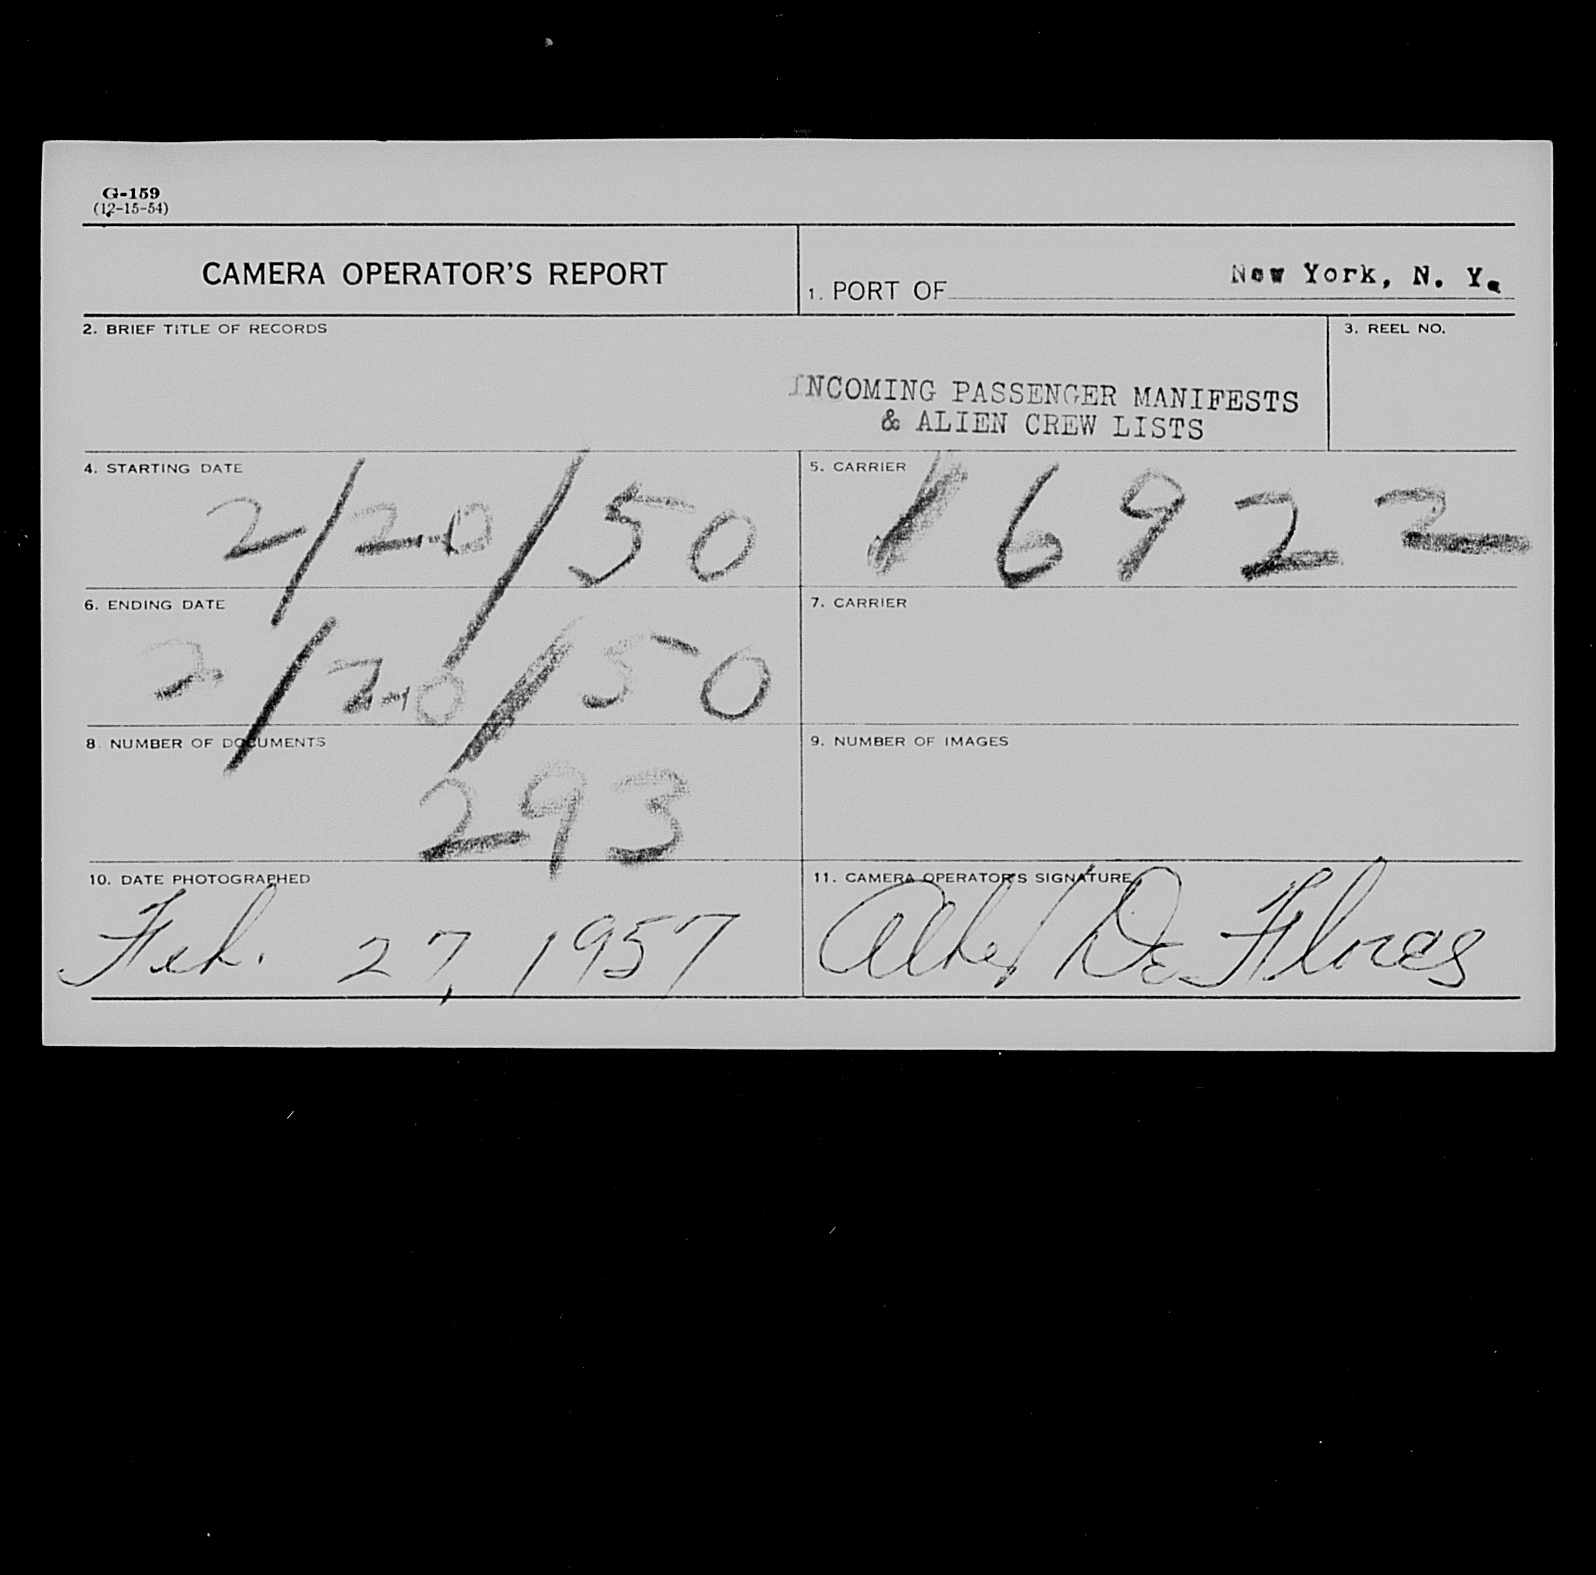 G-159
(12-15-54)
CAMERA OPERATOR'S REPORT
1. PORT OF New York, N. Y.
2. BRIEF TITLE OF RECORDS
INCOMING PASSENGER MANIFESTS
& ALIEN CREW LISTS
3. REEL NO.
4. STARTING DATE
2/20/50
5. CARRIER
16922
6. ENDING DATE
2/20/50
7. CARRIER
8. NUMBER OF DOCUMENTS
293
9. NUMBER OF IMAGES
10. DATE PHOTOGRAPHED
Feb. 27, 1957
11. CAMERA OPERATOR'S SIGNATURE
De